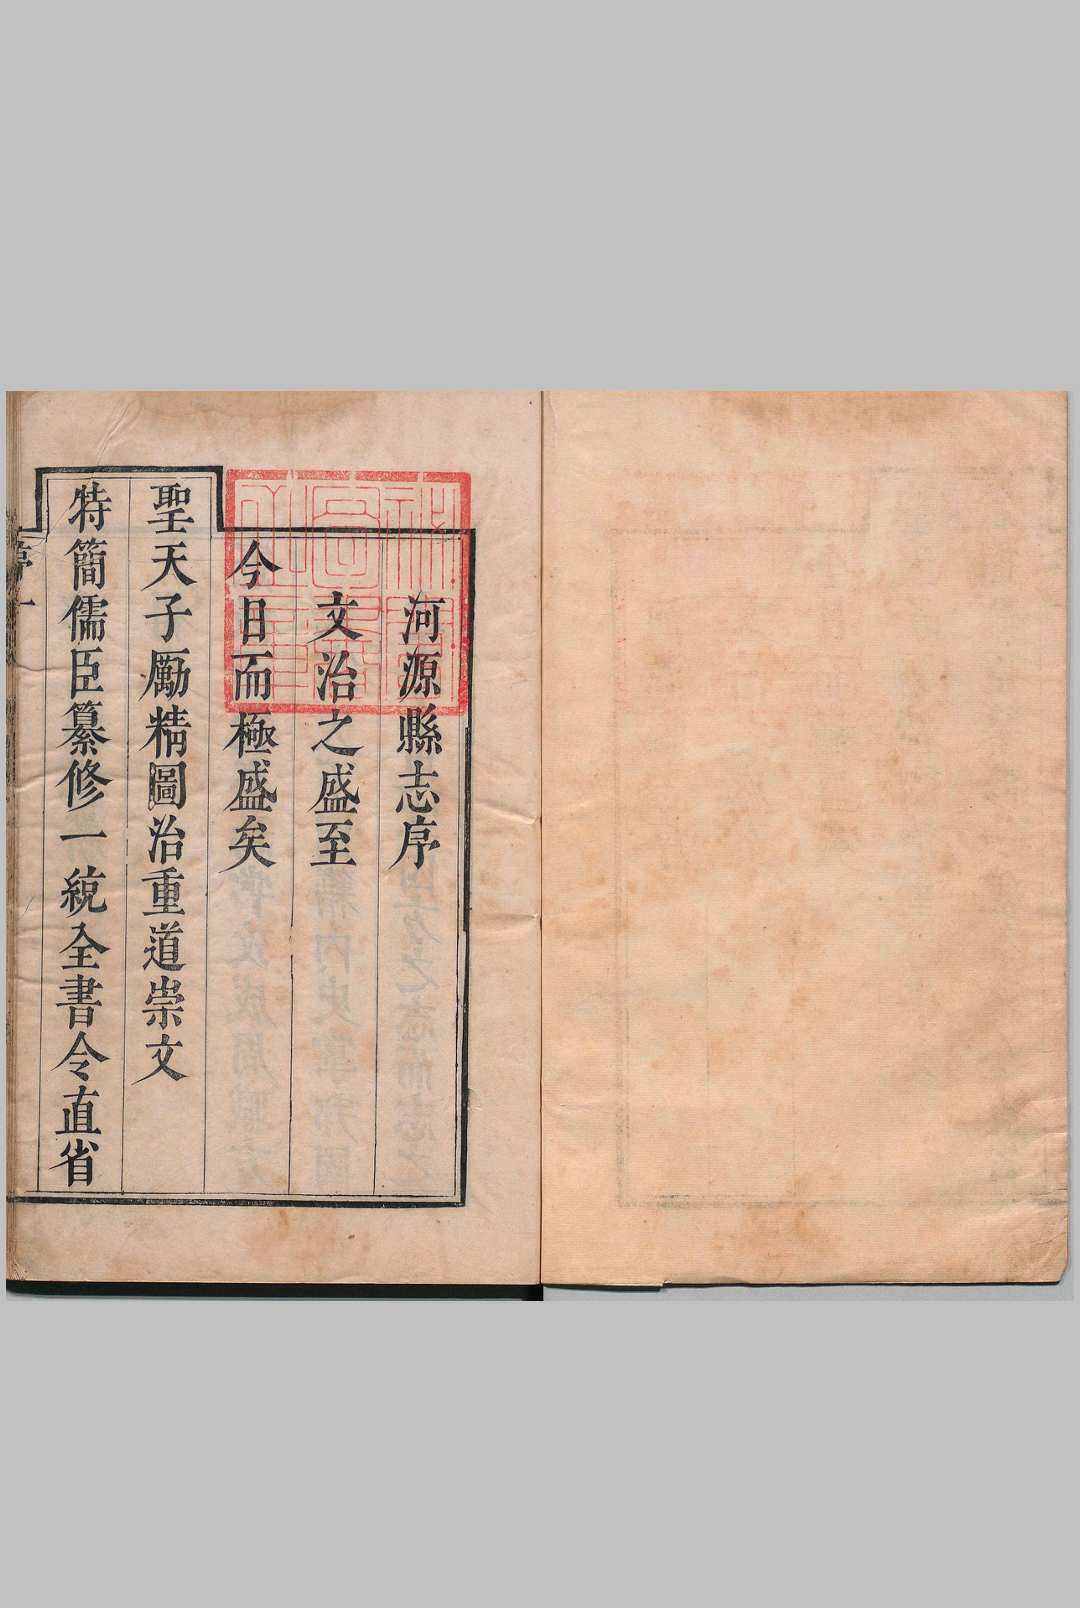 河源縣志序
文治之盛至
今日而極盛矣
聖天子勵精圖治重道崇文
特簡儒臣纂修一統全書令直省
序 一